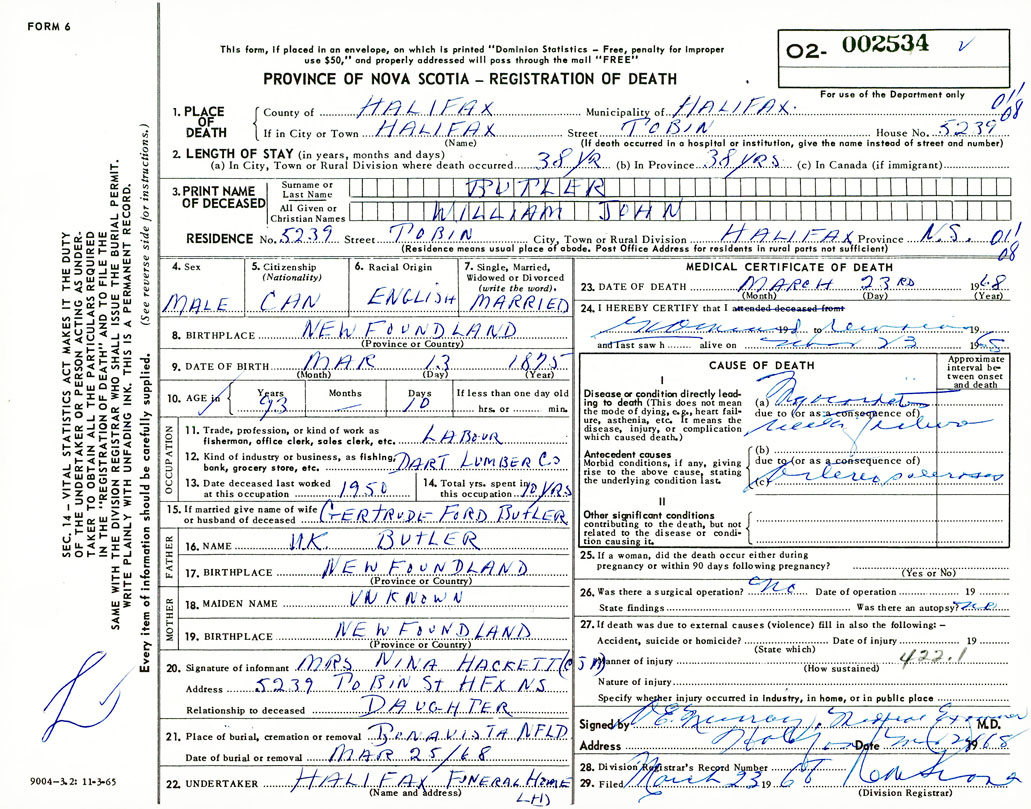 FORM 6
This form, if placed in an envelope, on which is printed "Dominion Statistics – Free, penalty for improper
use $50," and properly addressed will pass through the mail "FREE"
PROVINCE OF NOVA SCOTIA – REGISTRATION OF DEATH
02- 002534
For use of the Department only
SEC. 14 – VITAL STATISTICS ACT MAKES IT THE DUTY
OF THE UNDERTAKER OR PERSON ACTING AS UNDER-
TAKER TO OBTAIN ALL THE PARTICULARS REQUIRED
IN THE "REGISTRATION OF DEATH" AND TO FILE THE
SAME WITH THE DIVISION REGISTRAR WHO SHALL ISSUE THE BURIAL PERMIT.
WRITE PLAINLY WITH UNFADING INK. THIS IS A PERMANENT RECORD.
Every item of information should be carefully supplied. (See reverse side for instructions.)
1. PLACE OF DEATH
County of HALIFAX Municipality of HALIFAX.
011
08
If in City or Town HALIFAX Street TOBIN House No. 5239
(Name) (If death occurred in a hospital or institution, give the name instead of street and number)
2. LENGTH OF STAY (in years, months and days)
(a) In City, Town or Rural Division where death occurred 38 YR (b) In Province 38 YRS (c) In Canada (if immigrant)
3. PRINT NAME OF DECEASED
Surname or Last Name BUTLER
All Given or Christian Names WILLIAM JOHN
RESIDENCE No. 5239 Street TOBIN City, Town or Rural Division HALIFAX Province N.S. 011
08
(Residence means usual place of abode. Post Office Address for residents in rural parts not sufficient)
4. Sex MALE
5. Citizenship (Nationality) CAN
6. Racial Origin ENGLISH
7. Single, Married, Widowed or Divorced (write the word). MARRIED
8. BIRTHPLACE NEW FOUNDLAND
(Province or Country)
9. DATE OF BIRTH MAR 13 1875
(Month) (Day) (Year)
10. AGE in Years 93 Months — Days 10 If less than one day old hrs. or min.
OCCUPATION
11. Trade, profession, or kind of work as fisherman, office clerk, sales clerk, etc. LABOUR
12. Kind of industry or business, as fishing, bank, grocery store, etc. DART LUMBER CO
13. Date deceased last worked at this occupation 1950
14. Total yrs. spent in this occupation 10 YRS
15. If married give name of wife or husband of deceased GERTRUDE FORD BUTLER
FATHER
16. NAME UK. BUTLER
17. BIRTHPLACE NEW FOUNDLAND
(Province or Country)
MOTHER
18. MAIDEN NAME UNKNOWN
19. BIRTHPLACE NEW FOUNDLAND
(Province or Country)
20. Signature of informant MRS NINA HACKETT
Address 5239 TOBIN St HFX NS
Relationship to deceased DAUGHTER
21. Place of burial, cremation or removal BONAVISTA NFLD
Date of burial or removal MAR 25/68
22. UNDERTAKER HALIFAX FUNERAL HOME
(Name and address) LTD
9004-3.2: 11-3-65
MEDICAL CERTIFICATE OF DEATH
23. DATE OF DEATH MARCH 23RD 1968
(Month) (Day) (Year)
24. I HEREBY CERTIFY that I attended deceased from
19 to 19
and last saw h alive on 23 19
CAUSE OF DEATH
Approximate interval between onset and death
I
Disease or condition directly leading to death (This does not mean the mode of dying, e.g., heart failure, asthenia, etc. It means the disease, injury, or complication which caused death.)
(a)
due to (or as a consequence of)
Antecedent causes
Morbid conditions, if any, giving rise to the above cause, stating the underlying condition last.
(b)
due to (or as a consequence of)
(c)
II
Other significant conditions contributing to the death, but not related to the disease or condition causing it.
25. If a woman, did the death occur either during pregnancy or within 90 days following pregnancy?
(Yes or No)
26. Was there a surgical operation? No Date of operation 19
State findings Was there an autopsy? No
27. If death was due to external causes (violence) fill in also the following: –
Accident, suicide or homicide? Date of injury 19
(State which)
Manner of injury 422.1
(How sustained)
Nature of injury
Specify whether injury occurred in Industry, in home, or in public place
Signed by Murray, M.D.
Address Date 1968
28. Division Registrar's Record Number
29. Filed March 23 1968
(Division Registrar)